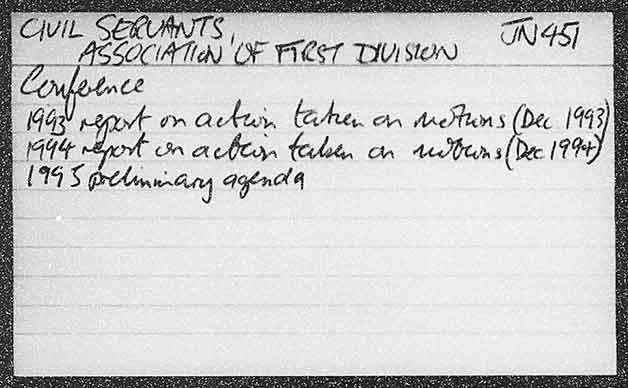 CIVIL SERVANTS, JN451
ASSOCIATION OF FIRST DIVISION
Conference
1993 report on action taken on motions (Dec 1993)
1994 report on action taken on motions (Dec 1994)
1995 preliminary agenda